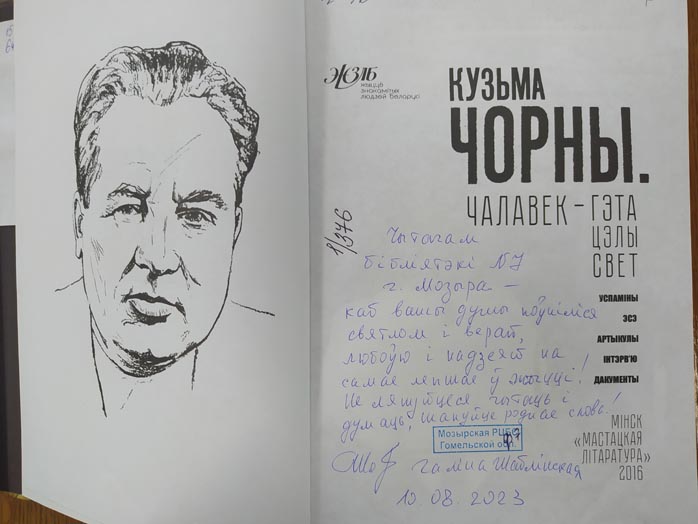 ЖЗЛБ
жыццё
знакамітых
людзей Беларусі
КУЗЬМА
ЧОРНЫ.
ЧАЛАВЕК – ГЭТА
ЦЭЛЫ
СВЕТ
УСПАМІНЫ
ЭСЭ
АРТЫКУЛЫ
ІНТЭРВ'Ю
ДАКУМЕНТЫ
1/376
Чытачам
бібліятэкі №7
г. Мозыра –
каб вашы душы поўніліся
святлом і верай,
любоўю і надзеяй на
самае лепшае ў жыцці!
Не лянуйцеся чытаць і
думаць, шануйце роднае слова!
Мозырская РЦБС
Гомельской обл.
Галіна Шаблінская
10.08.2023
МІНСК
«МАСТАЦКАЯ
ЛІТАРАТУРА»
2016